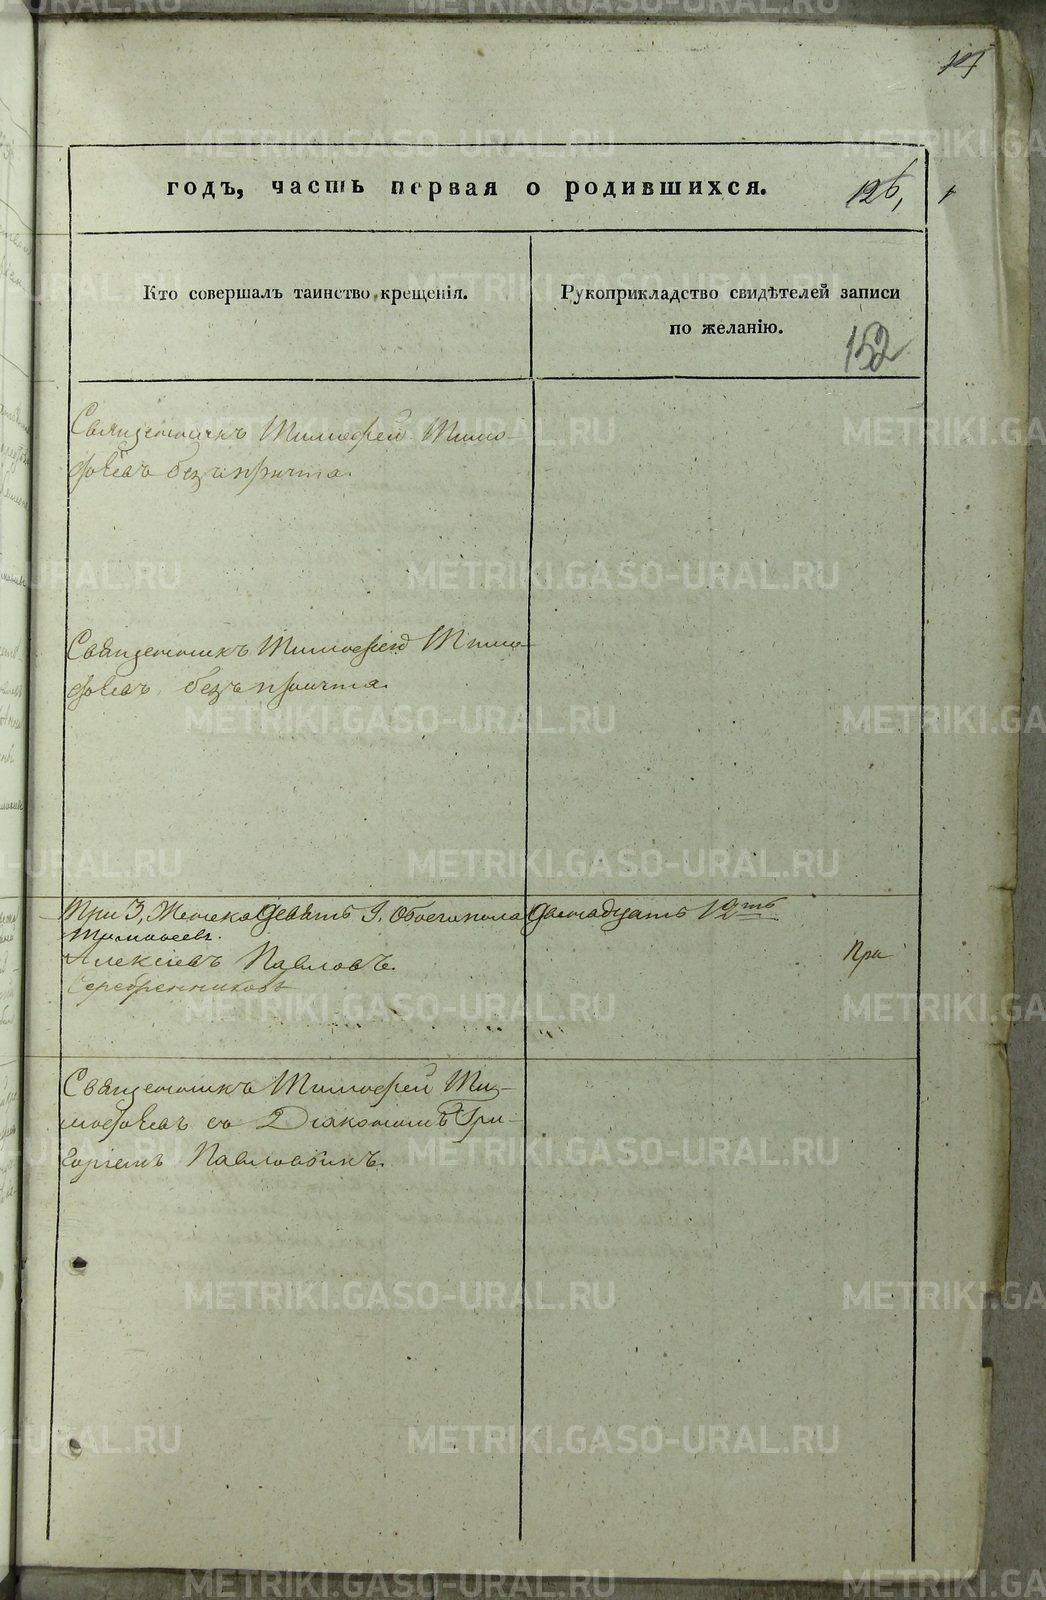 годъ, часть первая о родившихся.
126,
Кто совершалъ таинство крещенія.
Рукоприкладство свидѣтелей записи
по желанію.
152
Священникъ Тимофей Тимо-
фѣевъ безъ причта.
Священникъ Тимофей Тимо-
фѣевъ безъ причта.
Три 3, Женска девять 9, Обоего пола двенадцать 12ть
Тимофеевъ.
Алексѣевъ Павловъ.
Серебренниковъ
При
Священникъ Тимофей Ти-
мофѣевъ съ Діакономъ Гри-
горіемъ Павловымъ.
METRIKI.GASO-URAL.RU